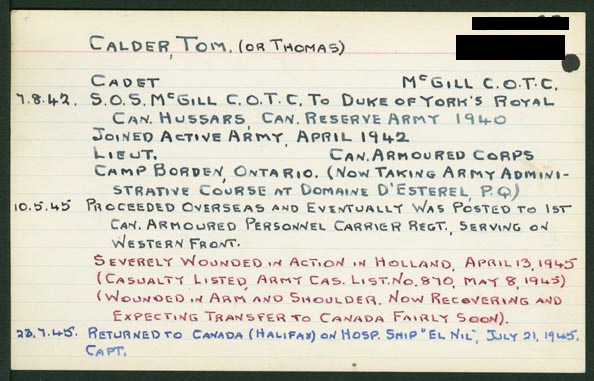 CALDER, TOM. (OR THOMAS)
CADET McGILL C.O.T.C.
7.8.42. S.O.S. McGILL C.O.T.C. TO DUKE OF YORK'S ROYAL
CAN. HUSSARS, CAN. RESERVE ARMY 1940
JOINED ACTIVE ARMY, APRIL 1942
LIEUT. CAN. ARMOURED CORPS
CAMP BORDEN, ONTARIO. (NOW TAKING ARMY ADMINI-
STRATIVE COURSE AT DOMAINE D'ESTEREL, P.Q.)
10.5.45 PROCEEDED OVERSEAS AND EVENTUALLY WAS POSTED TO 1ST
CAN. ARMOURED PERSONNEL CARRIER REGT., SERVING ON
WESTERN FRONT.
SEVERELY WOUNDED IN ACTION IN HOLLAND, APRIL 13, 1945
(CASUALTY LISTED, ARMY CAS. LIST. NO. 870, MAY 8, 1945)
(WOUNDED IN ARM AND SHOULDER. NOW RECOVERING AND
EXPECTING TRANSFER TO CANADA FAIRLY SOON).
23.7.45. RETURNED TO CANADA (HALIFAX) ON HOSP. SHIP "EL NIL", JULY 21, 1945.
CAPT.